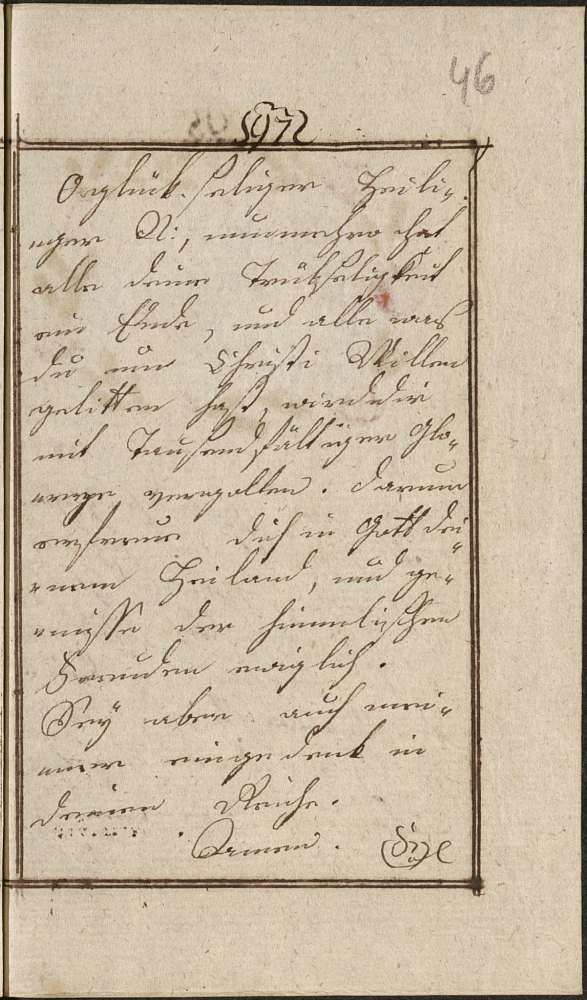 46
O glück-seliger Heili„
„ger N:, nunmehro hat
alle deine Trübseligkeit
ein Ende, und alles was
du um Christi Willen
gelitten hast, wird dir
mit Tausendfältiger Glo„
vergolten. Darum
erfreue dich in Gott dei„
„nem Heiland, und ge„
„niesse der himmlischen
Freuden ewiglich.
Sey aber auch mei„
„ner eingedenk in
deinem Reiche.
Amen.